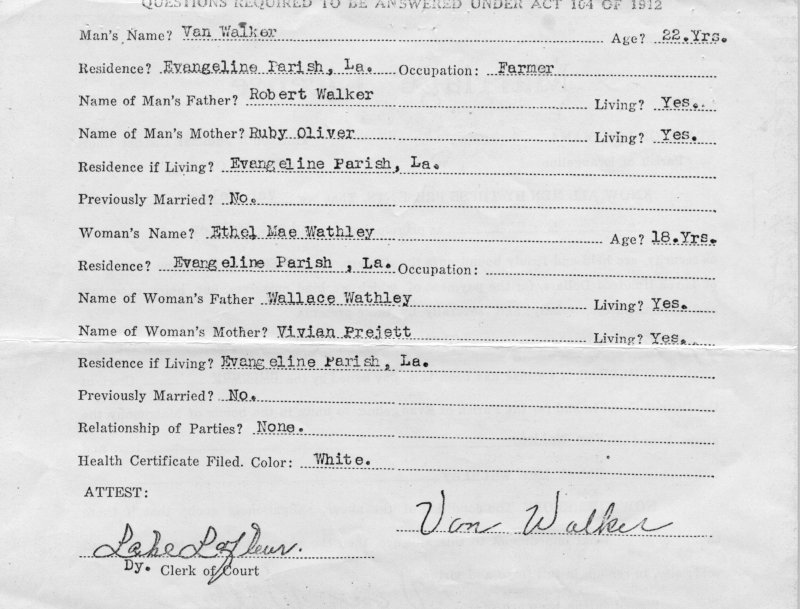 QUESTIONS REQUIRED TO BE ANSWERED UNDER ACT 164 OF 1912
Man's Name? Van Walker Age? 22.Yrs.
Residence? Evangeline Parish, La. Occupation: Farmer
Name of Man's Father? Robert Walker Living? Yes.
Name of Man's Mother? Ruby Oliver Living? Yes.
Residence if Living? Evangeline Parish, La.
Previously Married? No.
Woman's Name? Ethel Mae Wathley Age? 18.Yrs.
Residence? Evangeline Parish , La. Occupation:
Name of Woman's Father Wallace Wathley Living? Yes.
Name of Woman's Mother? Vivian Prejett Living? Yes.
Residence if Living? Evangeline Parish, La.
Previously Married? No.
Relationship of Parties? None.
Health Certificate Filed. Color: White.
ATTEST:
Van Walker
Lake Lafleur.
Dy. Clerk of Court